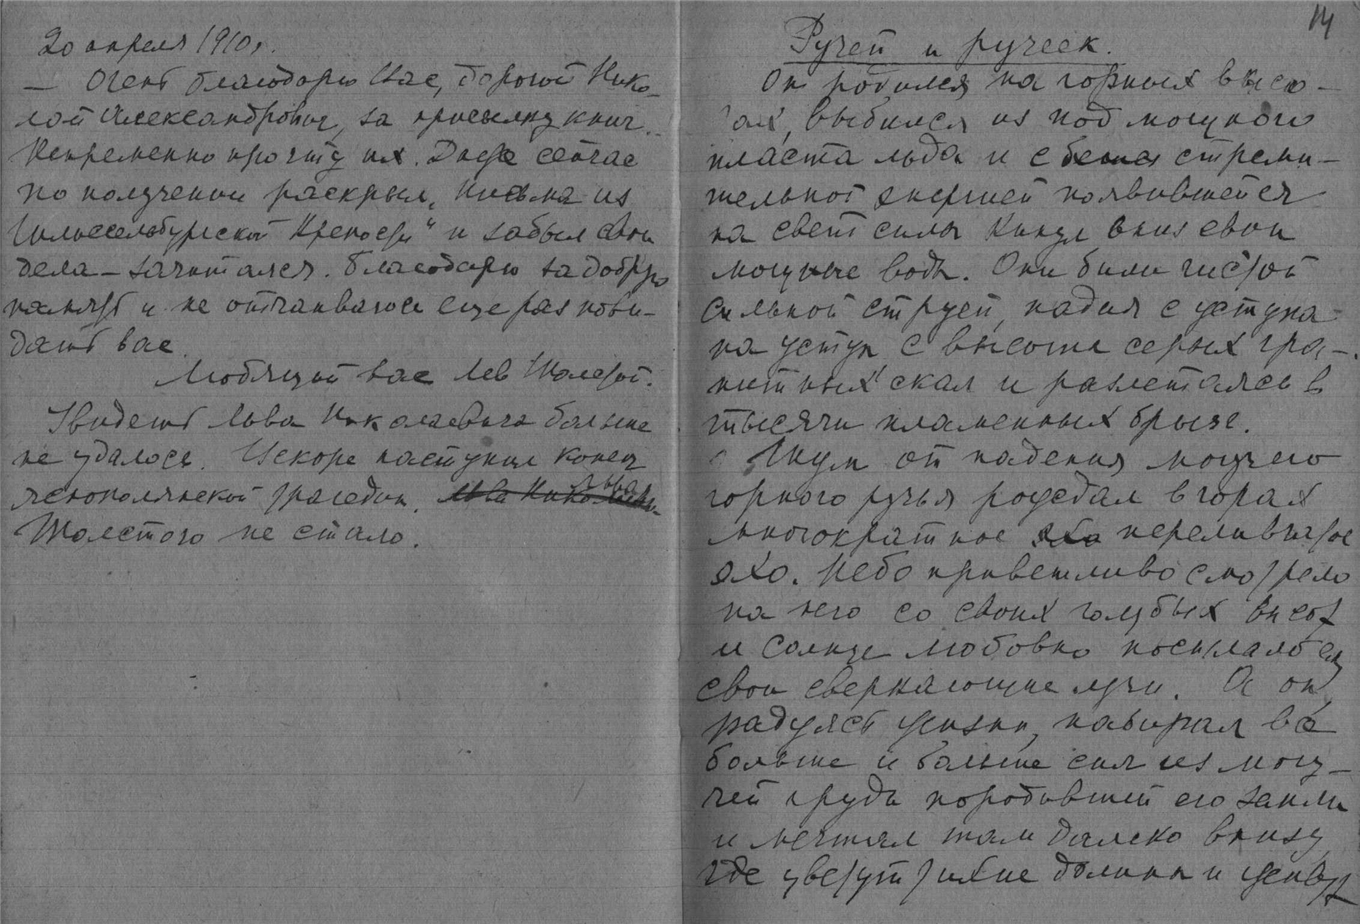 20 апреля 1910 г.
— Очень благодарю Вас, дорогой Нико-
лай Александрович, за присылку книг.
Непременно прочту их. Даже сейчас
по получении раскрыл „Письма из
Шлиссельбургской Крепости" и забыл свои
дела – зачитался. Благодарю за добрую
память и не отчаиваюсь еще раз пови-
дать вас.
Любящий вас Лев Толстой.
Увидеть Льва Николаевича больше
не удалось. Вскоре наступил конец
яснополянской трагедии. Льва
Толстого не стало.
14
Ручей и ручеек.
Он родился на горных высо-
тах, выбился из под мощного
пласта льда и с стреми-
тельной энергией появившейся
на свет силы кинул вниз свои
мощные воды. Они били чистой
сильной струей, падая с уступа
на уступ с высоты серых гра-
нитных скал и разлетаясь в
тысячи пламенных брызг.
Шум от падения могучего
горного ручья рождал в горах
многократное эхо переливчатое
эхо. Небо приветливо смотрело
на него со своих голубых высот
и солнце любовно посылало ему
свои сверкающие лучи. А он
радуясь жизни, набирал всё
больше и больше сил из могу-
чей груди породившей его земли
и мечтал там далеко внизу
где цветут тихие долины и живут